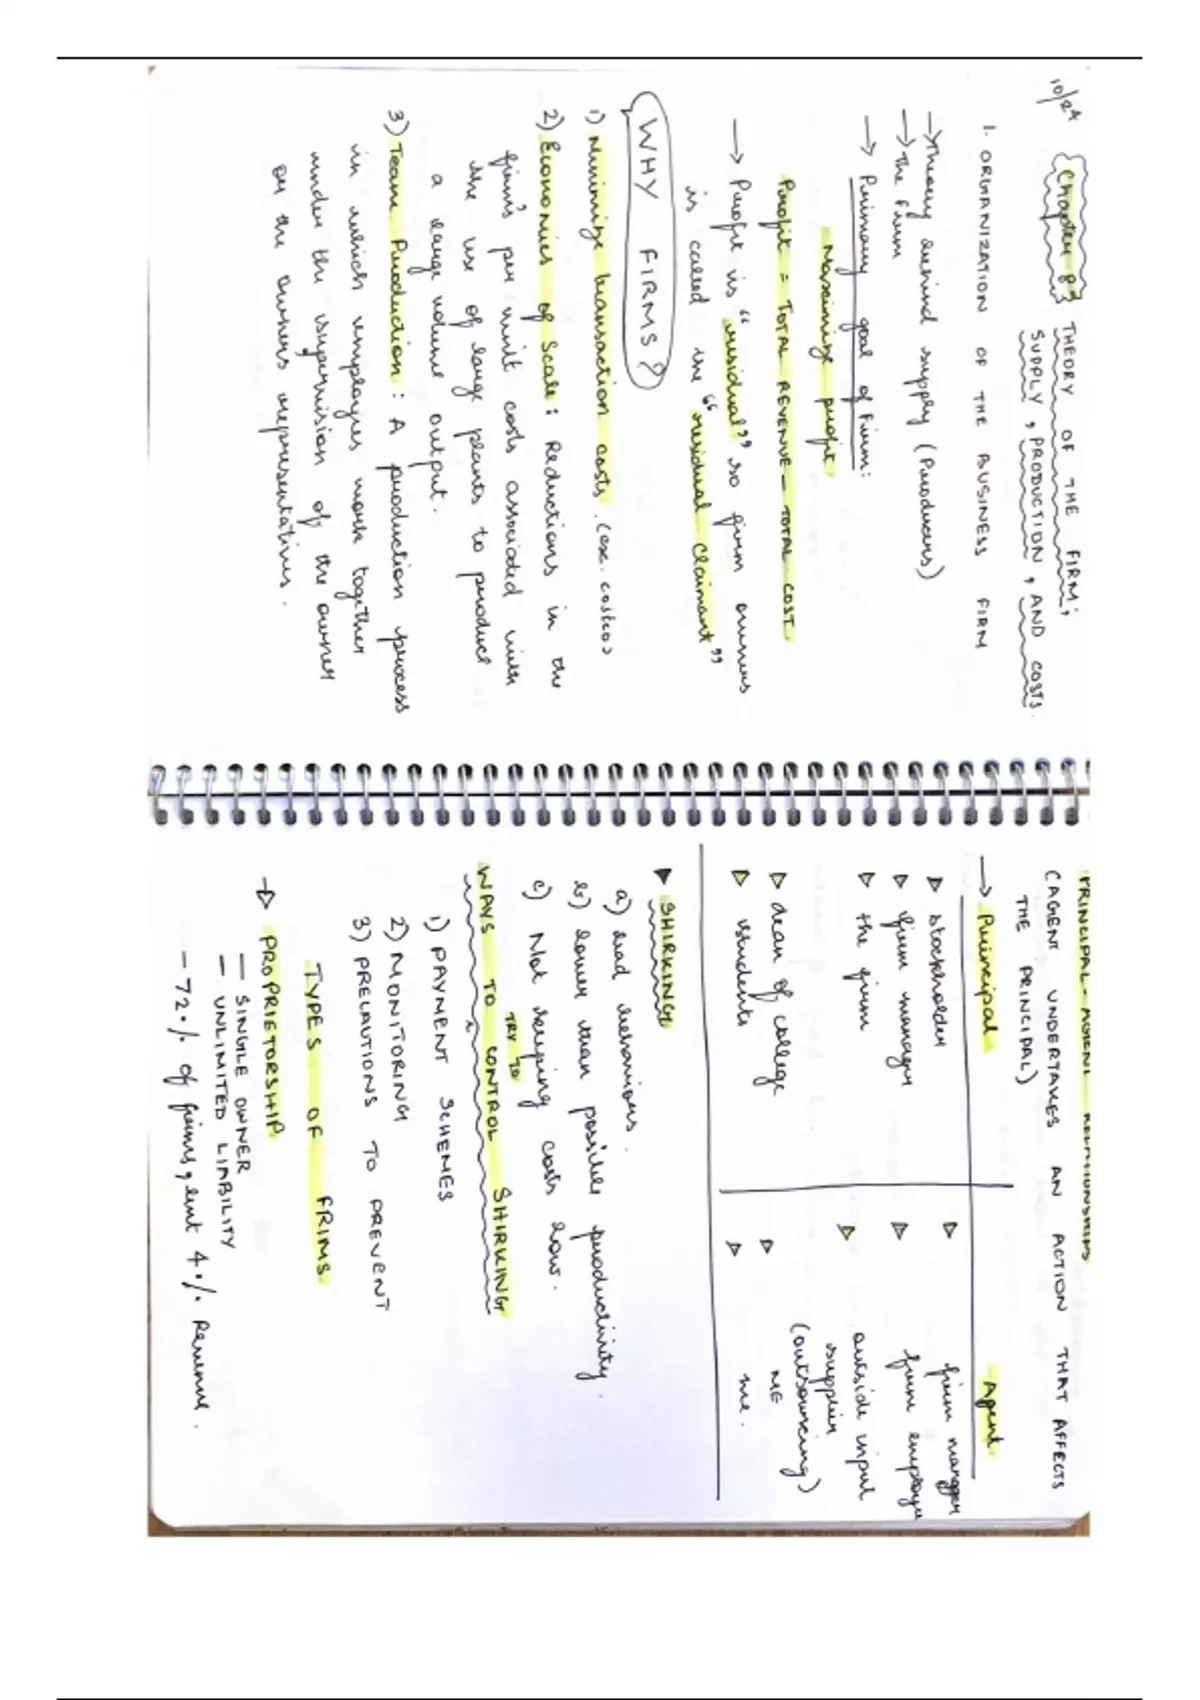 10/24
Chapter 8: THEORY OF THE FIRM;
SUPPLY, PRODUCTION, AND COSTS.
1. ORGANIZATION OF THE BUSINESS FIRM
→ Theory behind supply (Producers)
→ The Firm
→ Primary goal of Firm:
Maximize profit
Profit = TOTAL REVENUE - TOTAL COST.
→ Profit is "residual" so firm owners
is called the "residual claimant"
WHY FIRMS?
1) Minimize transaction costs. (ex. costco)
2) Economies of Scale: Reductions in the
firm's per unit costs associated with
the use of large plants to produce
a large volume output.
3) Team Production: A production process
in which employees work together
under the supervision of the owner
or the owners representatives.
PRINCIPAL-AGENT RELATIONSHIPS
(AGENT UNDERTAKES AN ACTION THAT AFFECTS
THE PRINCIPAL)
→ Principal Agent
▷ stockholder ▷ firm manager
▷ firm manager ▷ firm employee
▷ the firm ▷ outside input
supplier
(outsourcing)
▷ dean of college ▷ ME
▷ students ▷ me.
▶ SHIRKING
a) bad behaviour.
b) lower than possible productivity.
c) Not keeping costs low.
TRY TO
WAYS TO CONTROL SHIRKING
1) PAYMENT SCHEMES
2) MONITORING
3) PRELAUTIONS TO PREVENT
TYPES OF FRIMS.
→ PROPRIETORSHIP
- SINGLE OWNER
- UNLIMITED LIABILITY
- 72% of firms, but 4% Revenue.